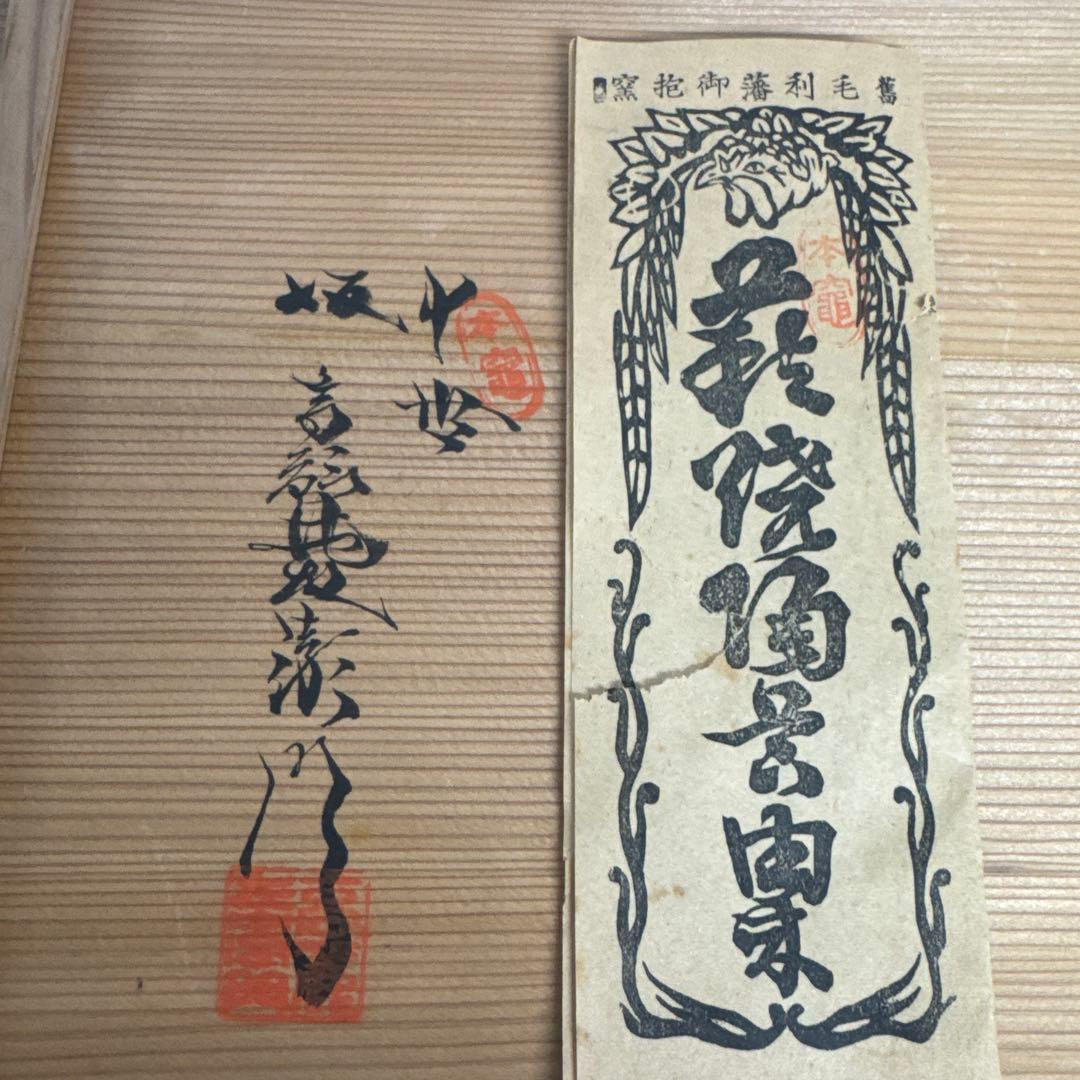 舊毛利藩御抱窯
本竈
萩焼陶器由来
十世
本竈
坂高麗左衛門